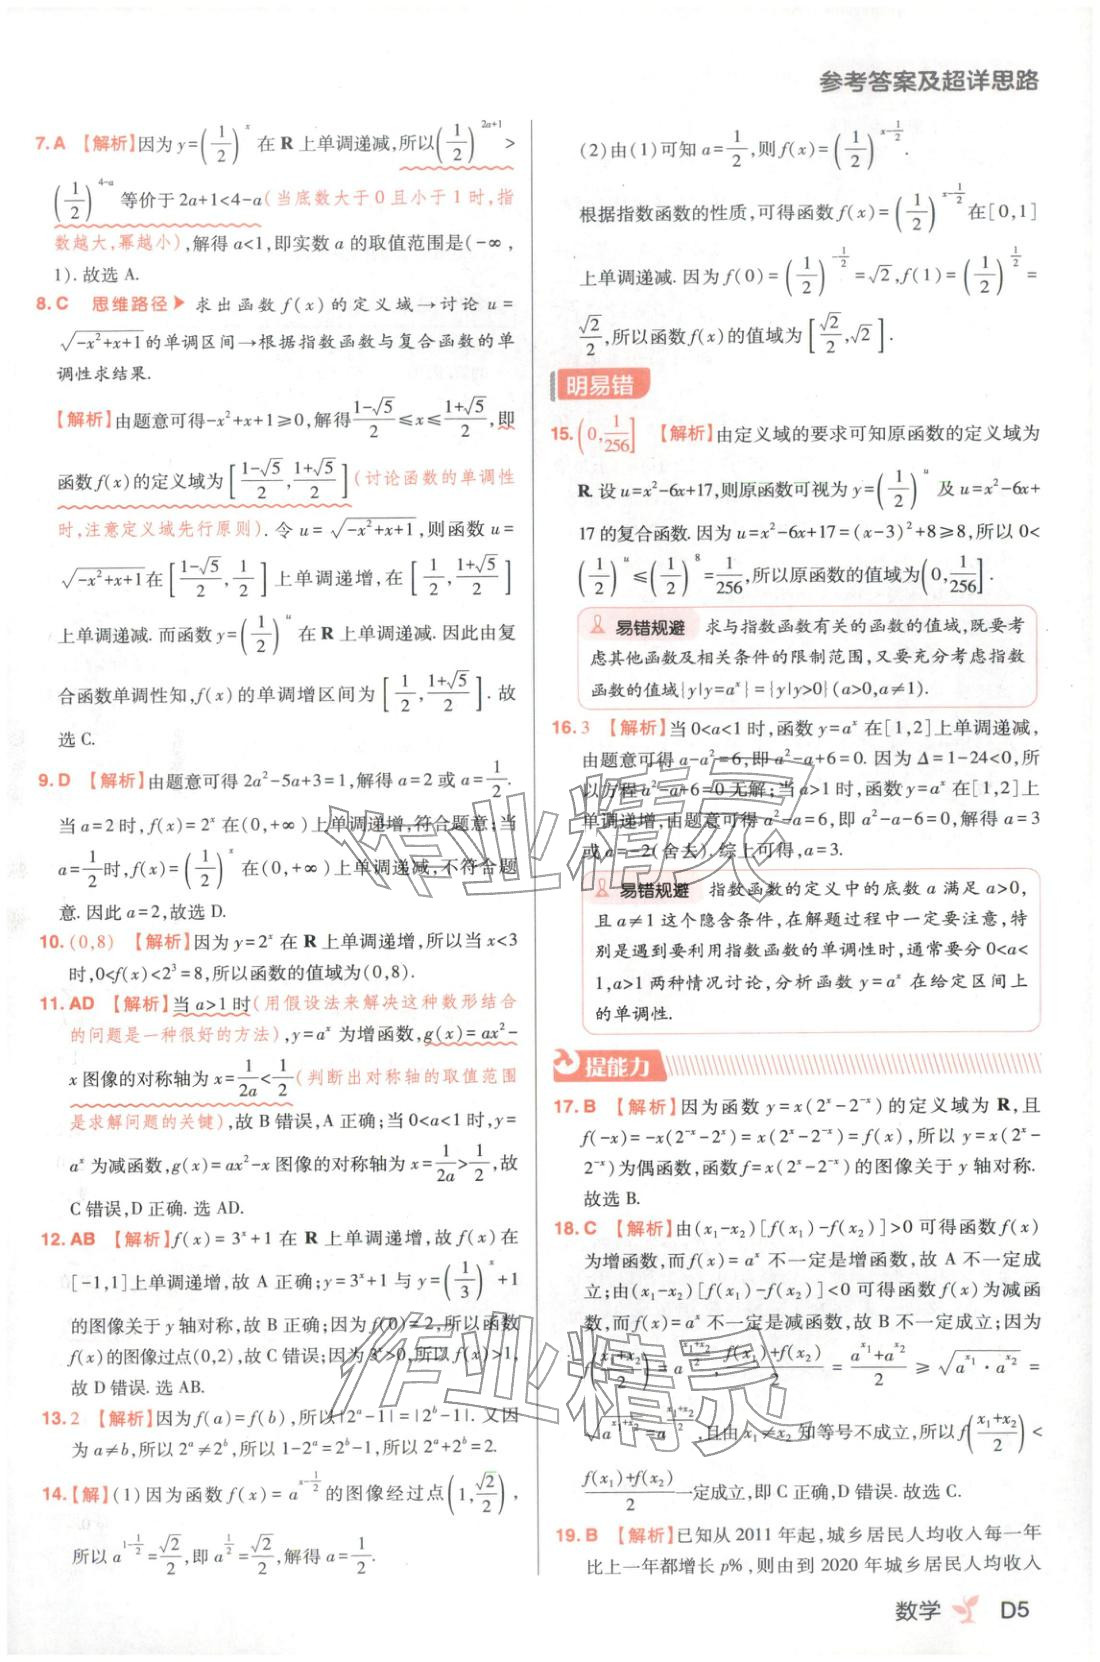 参考答案及超详思路
7. A 【解析】因为 y=(1/2)^x 在 R 上单调递减,所以(1/2)^(2a+1)>
(1/2)^(4-a) 等价于 2a+1<4-a(当底数大于 0 且小于 1 时,指
数越大,幂越小),解得 a<1,即实数 a 的取值范围是(-∞,
1). 故选 A.
8. C 思维路径▶ 求出函数 f(x)的定义域→讨论 u=
√(-x²+x+1)的单调区间→根据指数函数与复合函数的单
调性求结果.
【解析】由题意可得-x²+x+1≥0,解得(1-√5)/2≤x≤(1+√5)/2,即
函数 f(x)的定义域为[(1-√5)/2,(1+√5)/2](讨论函数的单调性
时,注意定义域先行原则). 令 u=√(-x²+x+1),则函数 u=
√(-x²+x+1)在[(1-√5)/2,1/2]上单调递增,在[1/2,(1+√5)/2]
上单调递减. 而函数 y=(1/2)^u 在 R 上单调递减. 因此由复
合函数单调性知,f(x)的单调增区间为[1/2,(1+√5)/2]. 故
选 C.
9. D 【解析】由题意可得 2a²-5a+3=1,解得 a=2 或 a=1/2.
当 a=2 时,f(x)=2^x 在(0,+∞)上单调递增,符合题意;当
a=1/2时,f(x)=(1/2)^x 在(0,+∞)上单调递减,不符合题
意. 因此 a=2,故选 D.
10. (0,8) 【解析】因为 y=2^x 在 R 上单调递增,所以当 x<3
时,0<f(x)<2³=8,所以函数的值域为(0,8).
11. AD 【解析】当 a>1 时(用假设法来解决这种数形结合
的问题是一种很好的方法),y=a^x 为增函数,g(x)=ax²-
x 图像的对称轴为 x=1/2a<1/2(判断出对称轴的取值范围
是求解问题的关键),故 B 错误,A 正确;当 0<a<1 时,y=
a^x 为减函数,g(x)=ax²-x 图像的对称轴为 x=1/2a>1/2,故
C 错误,D 正确. 选 AD.
12. AB 【解析】f(x)=3^x+1 在 R 上单调递增,故 f(x)在
[-1,1]上单调递增,故 A 正确;y=3^x+1 与 y=(1/3)^x+1
的图像关于 y 轴对称,故 B 正确;因为 f(0)=2,所以函数
f(x)的图像过点(0,2),故 C 错误;因为 3^x>0,所以 f(x)>1,
故 D 错误. 故选 AB.
13. 2 【解析】因为 f(a)=f(b),所以|2^a-1|=|2^b-1|. 又因
为 a≠b,所以 2^a≠2^b,所以 1-2^a=2^b-1,所以 2^a+2^b=2.
14.【解】(1)因为函数 f(x)=a^(x-1/2)的图像经过点(1,√2/2),
所以 a^(1-1/2)=√2/2,即 a^(1/2)=√2/2,解得 a=1/2.
(2)由(1)可知 a=1/2,则 f(x)=(1/2)^(x-1/2).
根据指数函数的性质,可得函数 f(x)=(1/2)^(x-1/2)在[0,1]
上单调递减. 因为 f(0)=(1/2)^(-1/2)=√2,f(1)=(1/2)^(1/2)=
√2/2,所以函数 f(x)的值域为[√2/2,√2].
明易错
15. (0,1/256] 【解析】由定义域的要求可知原函数的定义域为
R. 设 u=x²-6x+17,则原函数可视为 y=(1/2)^u 及 u=x²-6x+
17 的复合函数. 因为 u=x²-6x+17=(x-3)²+8≥8,所以 0<
(1/2)^u≤(1/2)^8=1/256,所以原函数的值域为(0,1/256].
易错规避 求与指数函数有关的函数的值域,既要考
虑其他函数及相关条件的限制范围,又要充分考虑指数
函数的值域{y|y=a^x}={y|y>0}(a>0,a≠1).
16. 3 【解析】当 0<a<1 时,函数 y=a^x 在[1,2]上单调递减,
由题意可得 a-a²=6,即 a²-a+6=0. 因为 Δ=1-24<0,所
以方程 a²-a+6=0 无解;当 a>1 时,函数 y=a^x 在[1,2]上
单调递增,由题意可得 a²-a=6,即 a²-a-6=0,解得 a=3
或 a=-2(舍去). 综上可得,a=3.
易错规避 指数函数的定义中的底数 a 满足 a>0,
且 a≠1 这个隐含条件,在解题过程中一定要注意,特
别是遇到要利用指数函数的单调性时,通常要分 0<a<
1,a>1 两种情况讨论,分析函数 y=a^x 在给定区间上
的单调性.
提能力
17. B 【解析】因为函数 y=x(2^x-2^-x)的定义域为 R,且
f(-x)=-x(2^-x-2^x)=x(2^x-2^-x)=f(x),所以 y=x(2^x-
2^-x)为偶函数,函数 f=x(2^x-2^-x)的图像关于 y 轴对称.
故选 B.
18. C 【解析】由(x₁-x₂)[f(x₁)-f(x₂)]>0 可得函数 f(x)
为增函数,而 f(x)=a^x 不一定是增函数,故 A 不一定成
立;由(x₁-x₂)[f(x₁)-f(x₂)]<0 可得函数 f(x)为减函
数,而 f(x)=a^x 不一定是减函数,故 B 不一定成立;因为
f((x₁+x₂)/2)=a^((x₁+x₂)/2),(f(x₁)+f(x₂))/2=(a^x₁+a^x₂)/2≥√(a^x₁·a^x₂)=
√(a^(x₁+x₂))=a^((x₁+x₂)/2),且由 x₁≠x₂知等号不成立,所以 f((x₁+x₂)/2)<
(f(x₁)+f(x₂))/2一定成立,即 C 正确,D 错误. 故选 C.
19. B 【解析】已知从 2011 年起,城乡居民人均收入每一年
比上一年都增长 p%,则由到 2020 年城乡居民人均收入
数学 D5
作业精灵
作业精灵